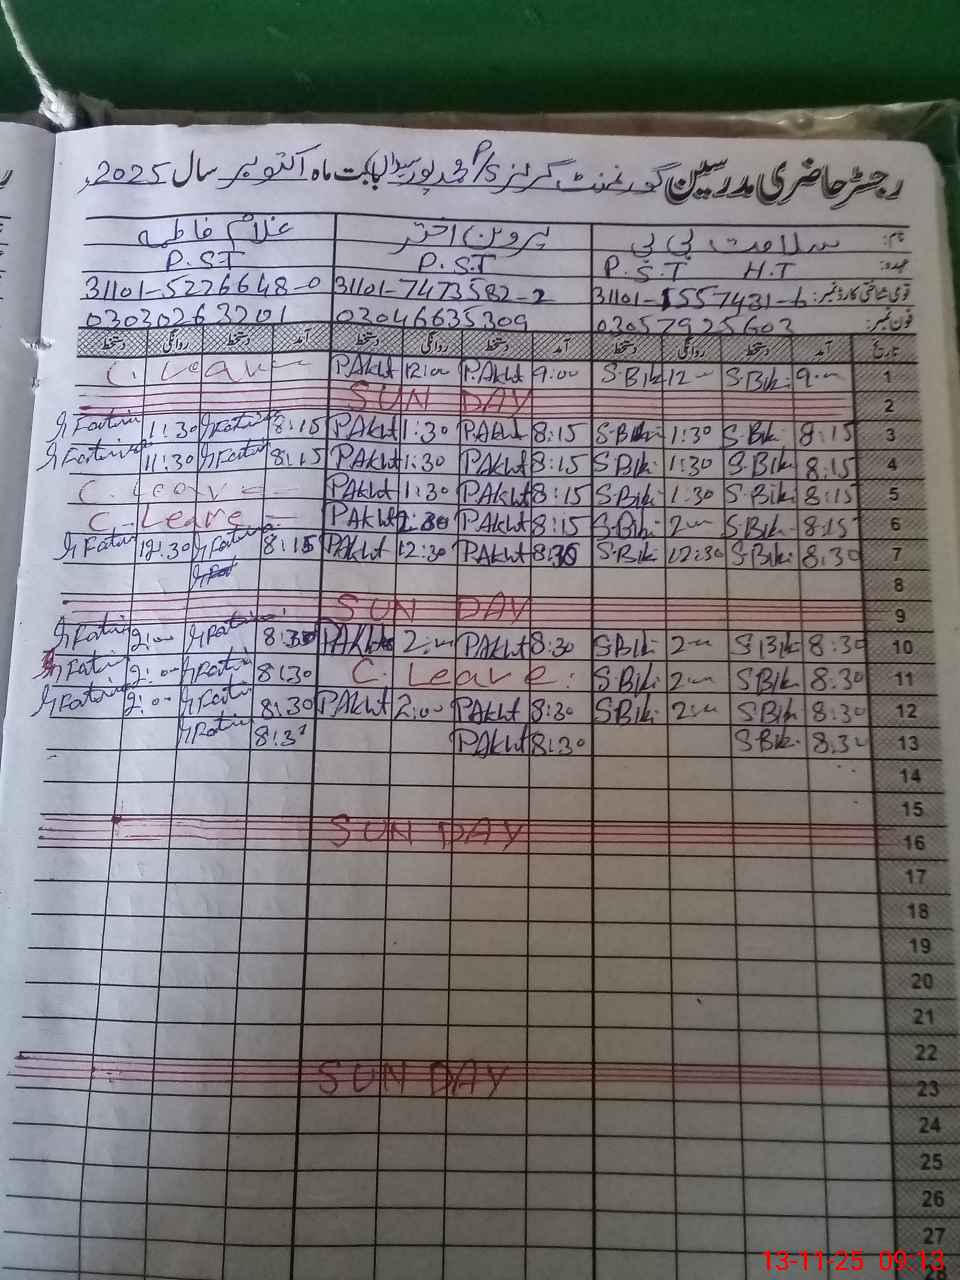 رجسٹر حاضری مدرسین گورنمنٹ گرلز P/S محمد پور سیوال بابت ماہ اکتوبر سال 2025ء
نام: سلامت بی بی پروین اختر غلام فاطمہ
عہدہ: P.S.T H.T P.S.T P.S.T
قومی شناختی کارڈ نمبر: 31101-1557431-6 31101-7473582-2 31101-5226648-0
فون نمبر: 03057925603 03046635309 03030263201
تاریخ آمد دستخط روانگی دستخط آمد دستخط روانگی دستخط آمد دستخط روانگی دستخط
C. Leave PAkht 12:00 PAkht 9:00 S.Bibi 12 — S.Bibi 9 — 1
SUN DAY 2
G Fatima 11:30 G Fatima 8:15 PAkht 1:30 PAkht 8:15 S.Bibi 1:30 S.Bibi 8:15 3
G Fatima 11:30 G Fatima 8:15 PAkht 1:30 PAkht 8:15 S.Bibi 1:30 S.Bibi 8:15 4
C. Leave PAkht 1:30 PAkht 8:15 S.Bibi 1:30 S.Bibi 8:15 5
C. Leave PAkht PAkht 8:15 S.Bibi 2 — S.Bibi 8:15 6
G Fatima 12:30 G Fatima 8:15 PAkht 12:30 PAkht 8:30 S.Bibi 12:30 S.Bibi 8:30 7
8
SUN DAY 9
G Fatima 2:00 G Fatima 8:30 PAkht 2:00 PAkht 8:30 S.Bibi 2 — S.Bibi 8:30 10
G Fatima 2:00 G Fatima 8:30 C. Leave. S.Bibi 2 — S.Bibi 8:30 11
G Fatima 2:00 G Fatima 8:30 PAkht 2:00 PAkht 8:30 S.Bibi 2 — S.Bibi 8:30 12
G Fatima 8:3 PAkht 8:30 S.Bibi 8:30 13
14
15
SUN DAY 16
17
18
19
20
21
22
SUN DAY 23
24
25
26
27
28
13-11-25 09:13